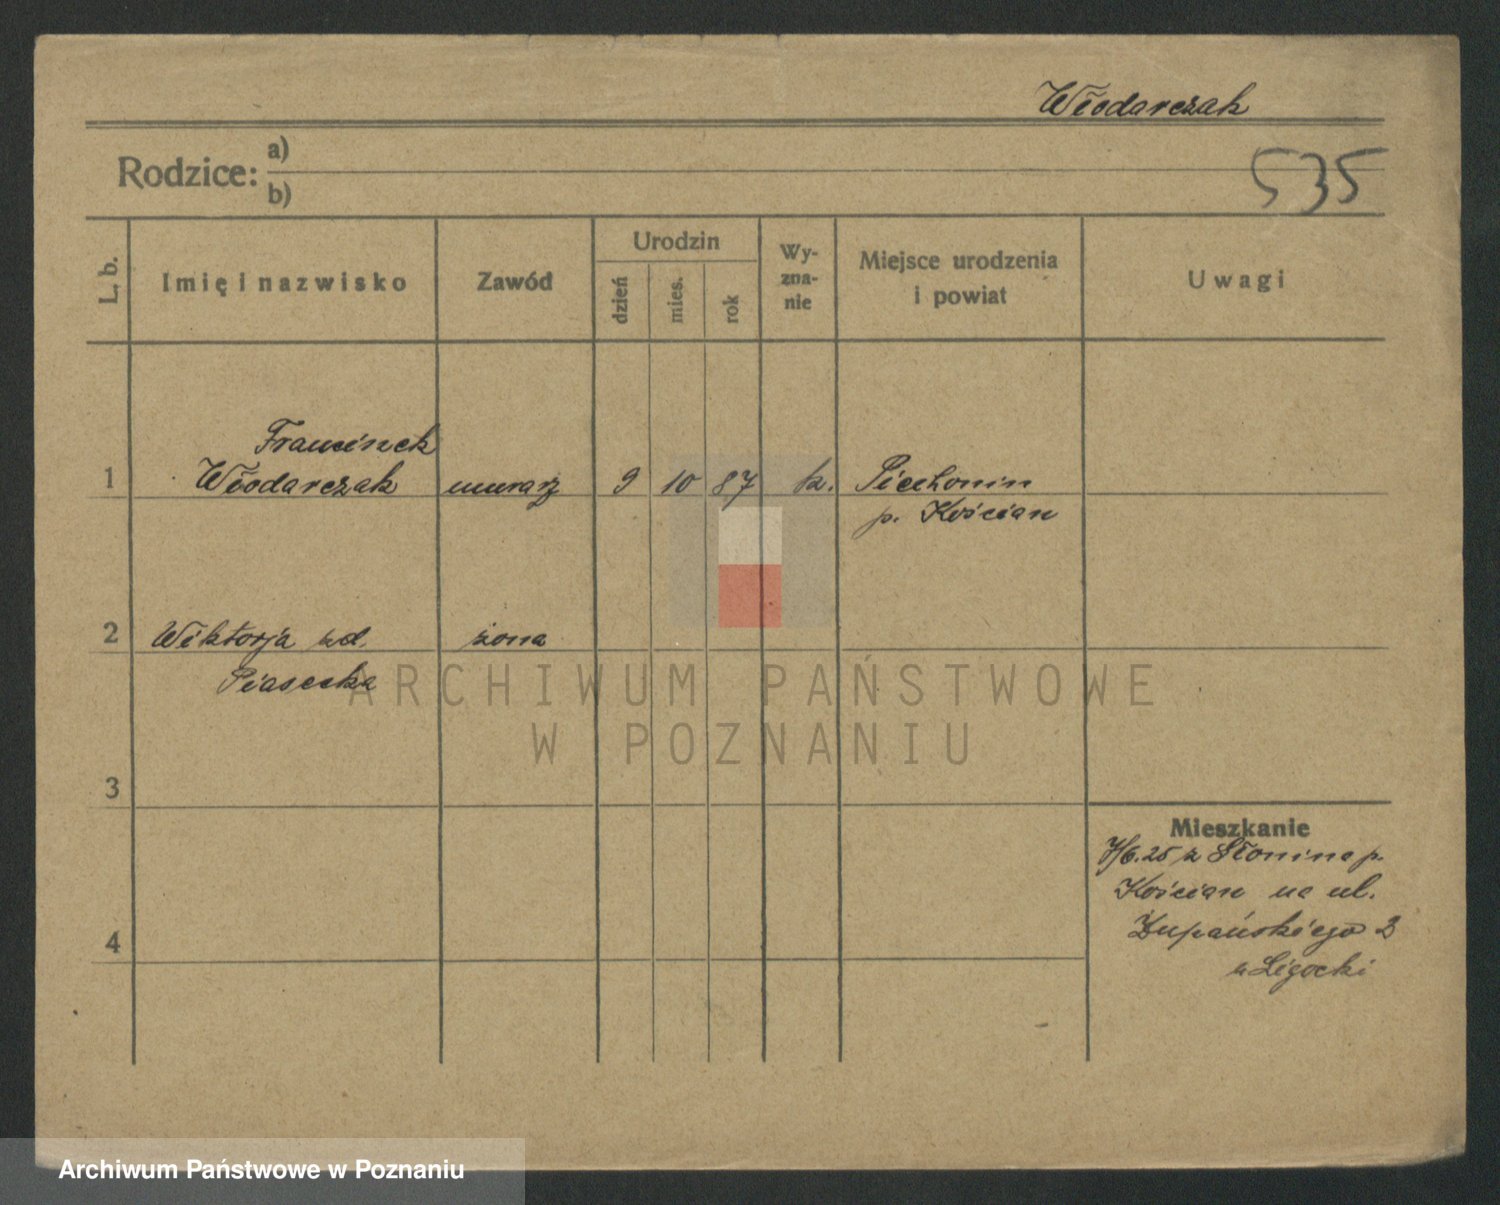 Włodarczak
Rodzice: a)
535
b)
L. b.
Imię i nazwisko
Zawód
Urodzin
dzień
mies.
rok
Wy-
zna-
nie
Miejsce urodzenia
i powiat
Uwagi
Franciszek
1 Włodarczak murarz 9 10 87 k. Piechonin
p. Kościan
2 Wiktorja zd. żona
Piasecka
ARCHIWUM PAŃSTWOWE
W POZNANIU
3
Mieszkanie
7/6.25 z Słonina p.
Kościan na ul.
Żupańskiego 2
4
u Ligocki
Archiwum Państwowe w Poznaniu